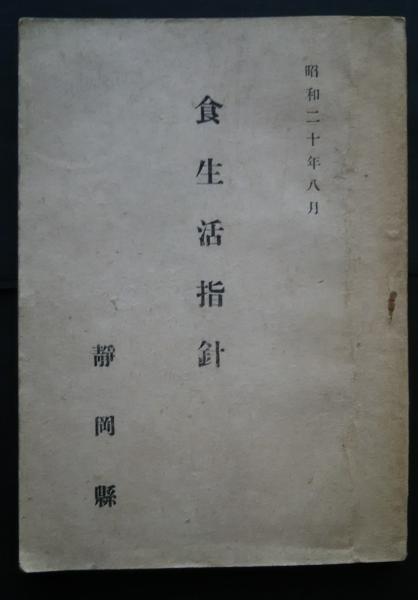 昭和二十年八月
食生活指針
靜岡縣